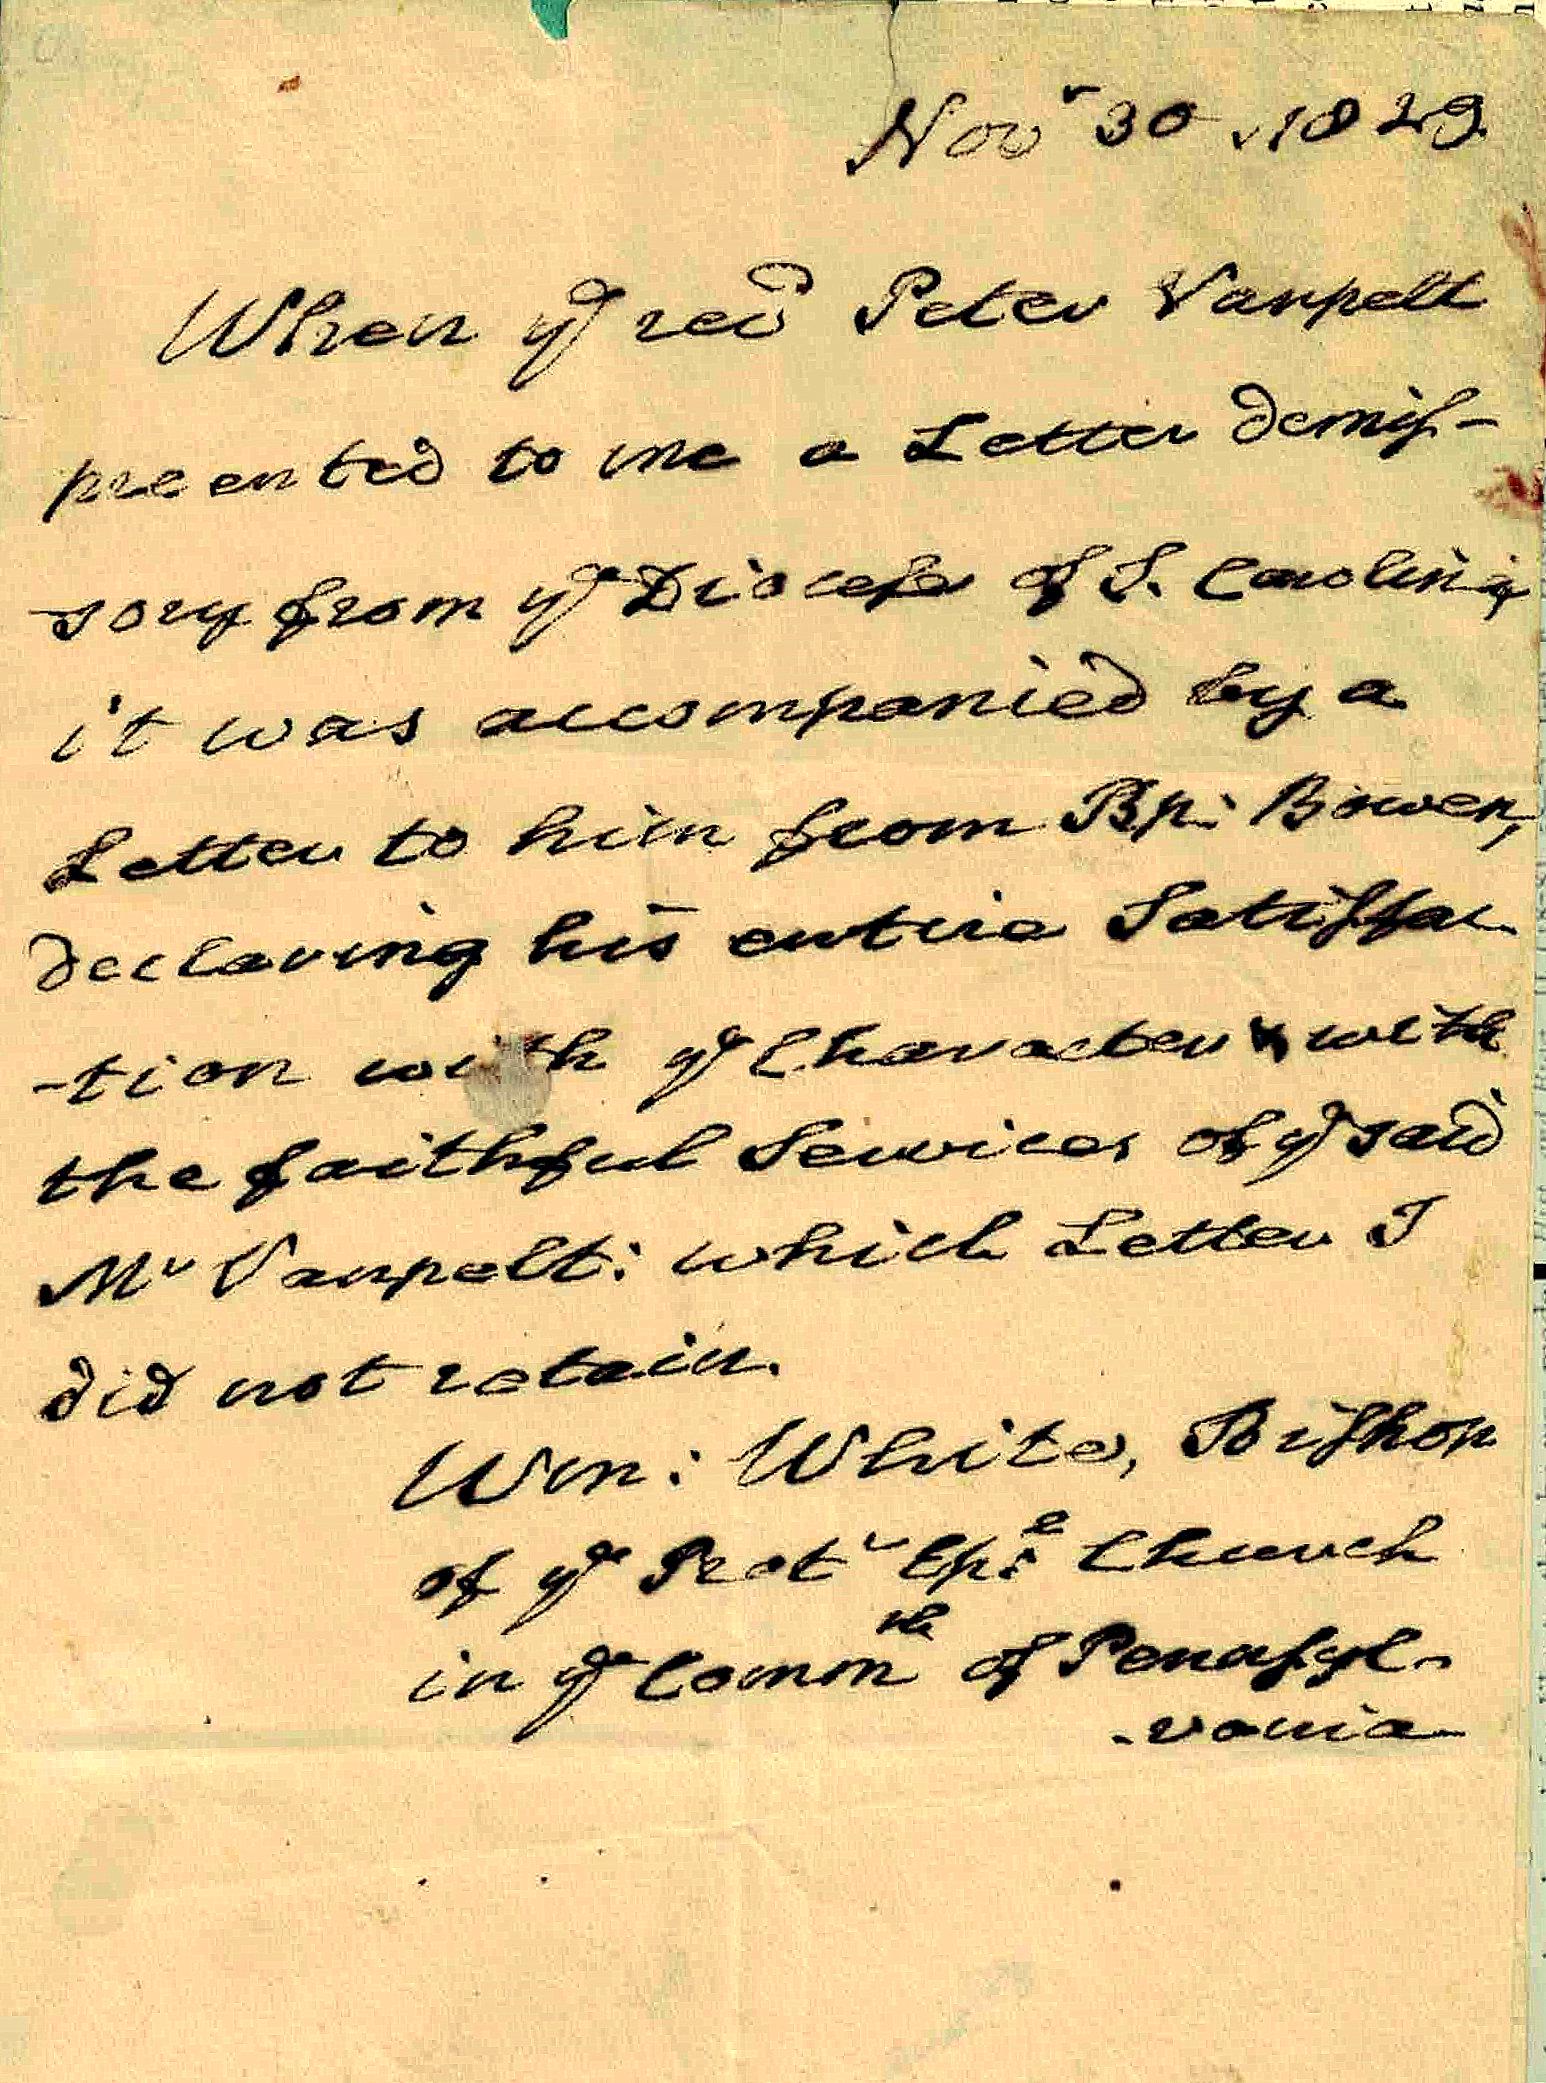 Nov.r 30, 1829.
When ye revd Peter Vanpelt
preented to me a Letter demis-
sory from ye Diocese of S. Carolina,
it was accompanied by a
Letter to him from Bp: Bowen,
declaring his entire Satisfac-
-tion with ye Character & with
the faithful Services of ye said
Mr Vanpelt: which Letter I
did not retain.
Wm: White, Bishop
of ye Prott Eple Church
in ye Commth of Pennsyl-
-vania